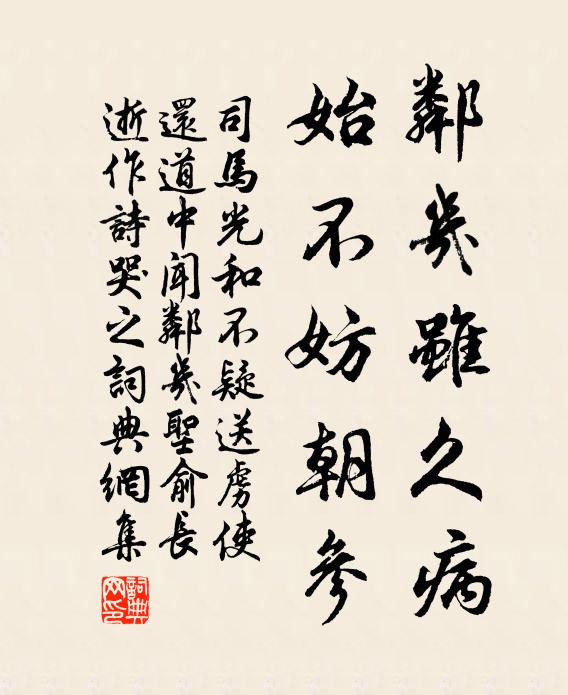 鄰幾雖久病
始不妨朝參
司馬光和不疑送虜使
還道中聞鄰幾聖俞長
逝作詩哭之詞典網集
詞典網印